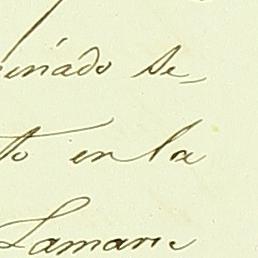 inádo se-
to en la
Lamarc